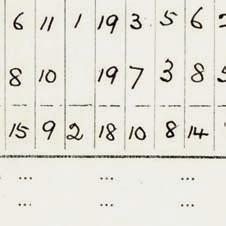 6 11 1 19 3 5 6
8 10 19 7 3 8
15 9 2 18 10 8 14
... ... ...
... ... ...